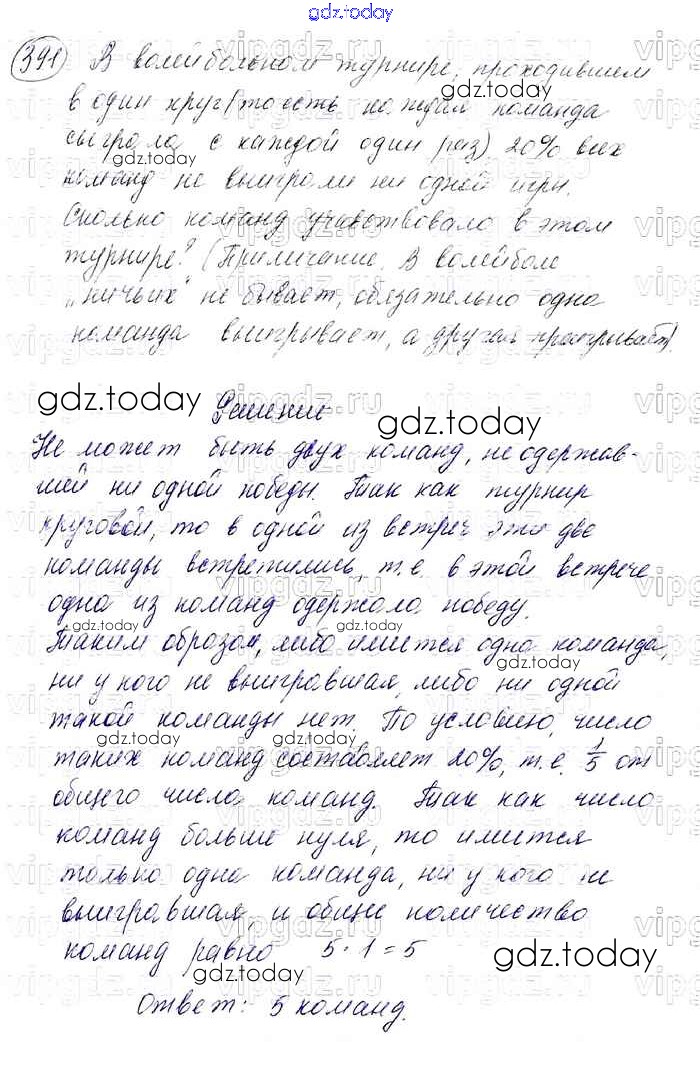 gdz.today
391 В волейбольном турнире, проходившем
в один круг (то есть каждая команда
сыграла с каждой один раз) 20% всех
команд не выиграли ни одной игры.
Сколько команд участвовало в этом
турнире? (Примечание. В волейболе
„ничьих" не бывает, обязательно одна
команда выигрывает, а другая проигрывает).
gdz.today Решение gdz.today
Не может быть двух команд, не одержав-
шей ни одной победы. Так как турнир
круговой, то в одной из встреч эти две
команды встретились, т.е. в этой встрече
одна из команд одержала победу.
Таким образом, либо имеется одна команда,
ни у кого не выигравшая, либо ни одной
такой команды нет. По условию, число
таких команд составляет 20%, т.е. 1/5 от
общего числа команд. Так как число
команд больше нуля, то имеется
только одна команда, ни у кого не
выигравшая, и общее количество
команд равно 5 · 1 = 5
gdz.today
Ответ: 5 команд.